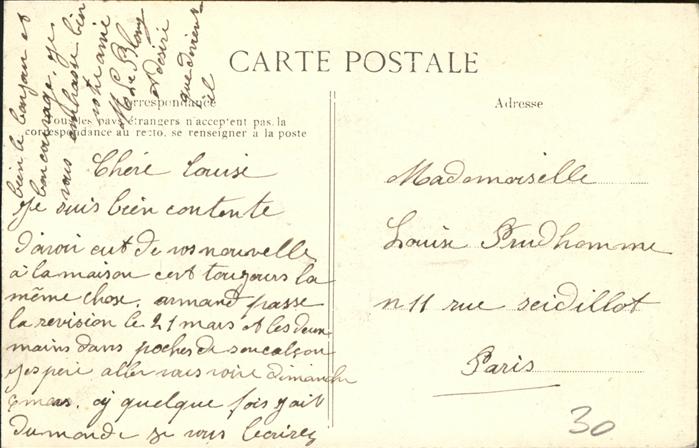 CARTE POSTALE
Correspondance
Tous les pays étrangers n'acceptent pas la
correspondance au recto, se renseigner à la poste
Adresse
Chére Louise
Je suis bien contente
d'avoir eut de vos nouvelle
à la maison cest toujours la
même chose. armand passe
la revision le 21 mars et les deux
mains dans poches de son calçon
j'espere aller vous voire dimanche
mars. quelque fois
du monde si vous
bien le bonjour et
bon courage. je
vous embrasse bien
votre amie
M Le Blanc
et désiré
que devient
il
Mademoiselle
Louise Prudhomme
n 11 rue seidillot
Paris
30